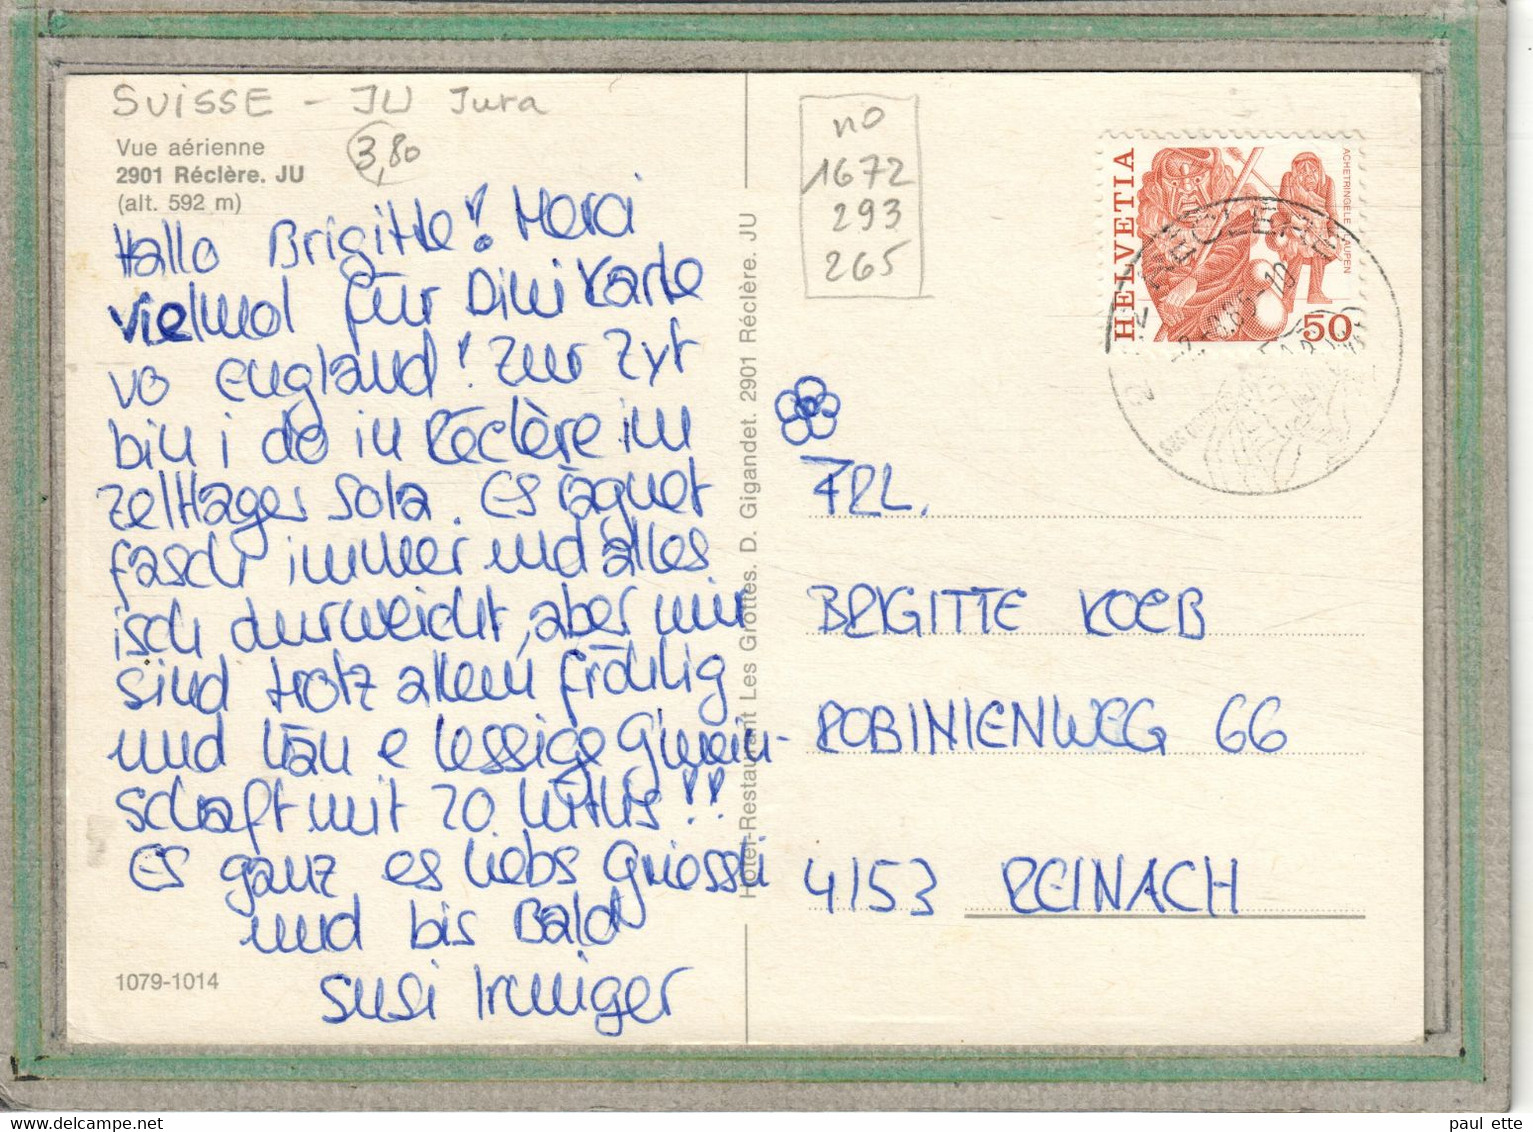 SUISSE - JU Jura
Vue aérienne
2901 Réclère. JU
(alt. 592 m)
3,80
Hallo Brigitte! Merci
vielmol für Dini Karte
vo England! Zur Zyt
bin i do in Réclère im
Zeltlager Sola. Es rägnet
fasch immer und alles
isch durweicht, aber mir
sind trotz allem fröhlig
und hän e lessige G'mein-
schaft mit 20
Es ganz es liebs Griessli
und bis Bald
Susi Irmiger
1079-1014
Hotel-Restaurant Les Grottes. D. Gigandet. 2901 Réclère. JU
no
1672
293
265
HELVETIA
ACHETRINGELE LAUPEN
50
FRL.
BRIGITTE KOEB
ROBINIENWEG 66
4153 REINACH
paul ette